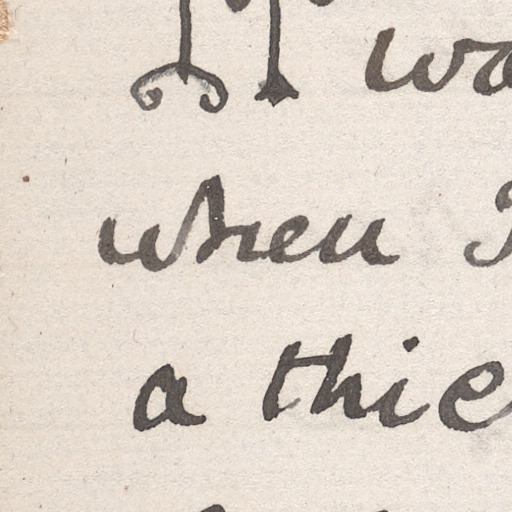 wa
when I
a thie